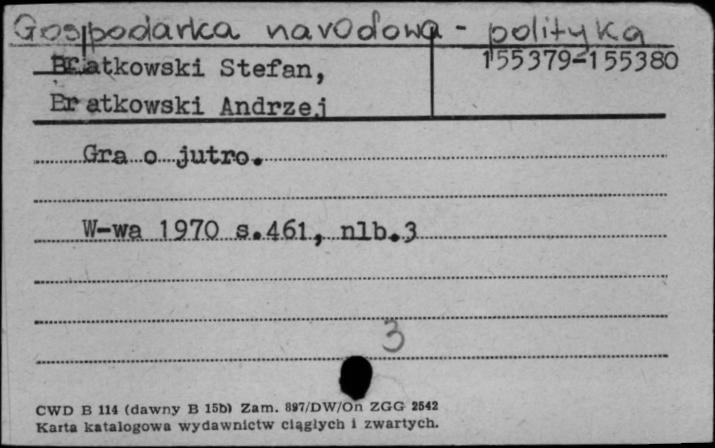 Gospodarka narodowa - polityka
Bratkowski Stefan, 155379-155380
Bratkowski Andrzej
Gra o jutro.
W-wa 1970 s.461, nlb.3
3
CWD B 114 (dawny B 15b) Zam. 897/DW/On ZGG 2542
Karta katalogowa wydawnictw ciągłych i zwartych.